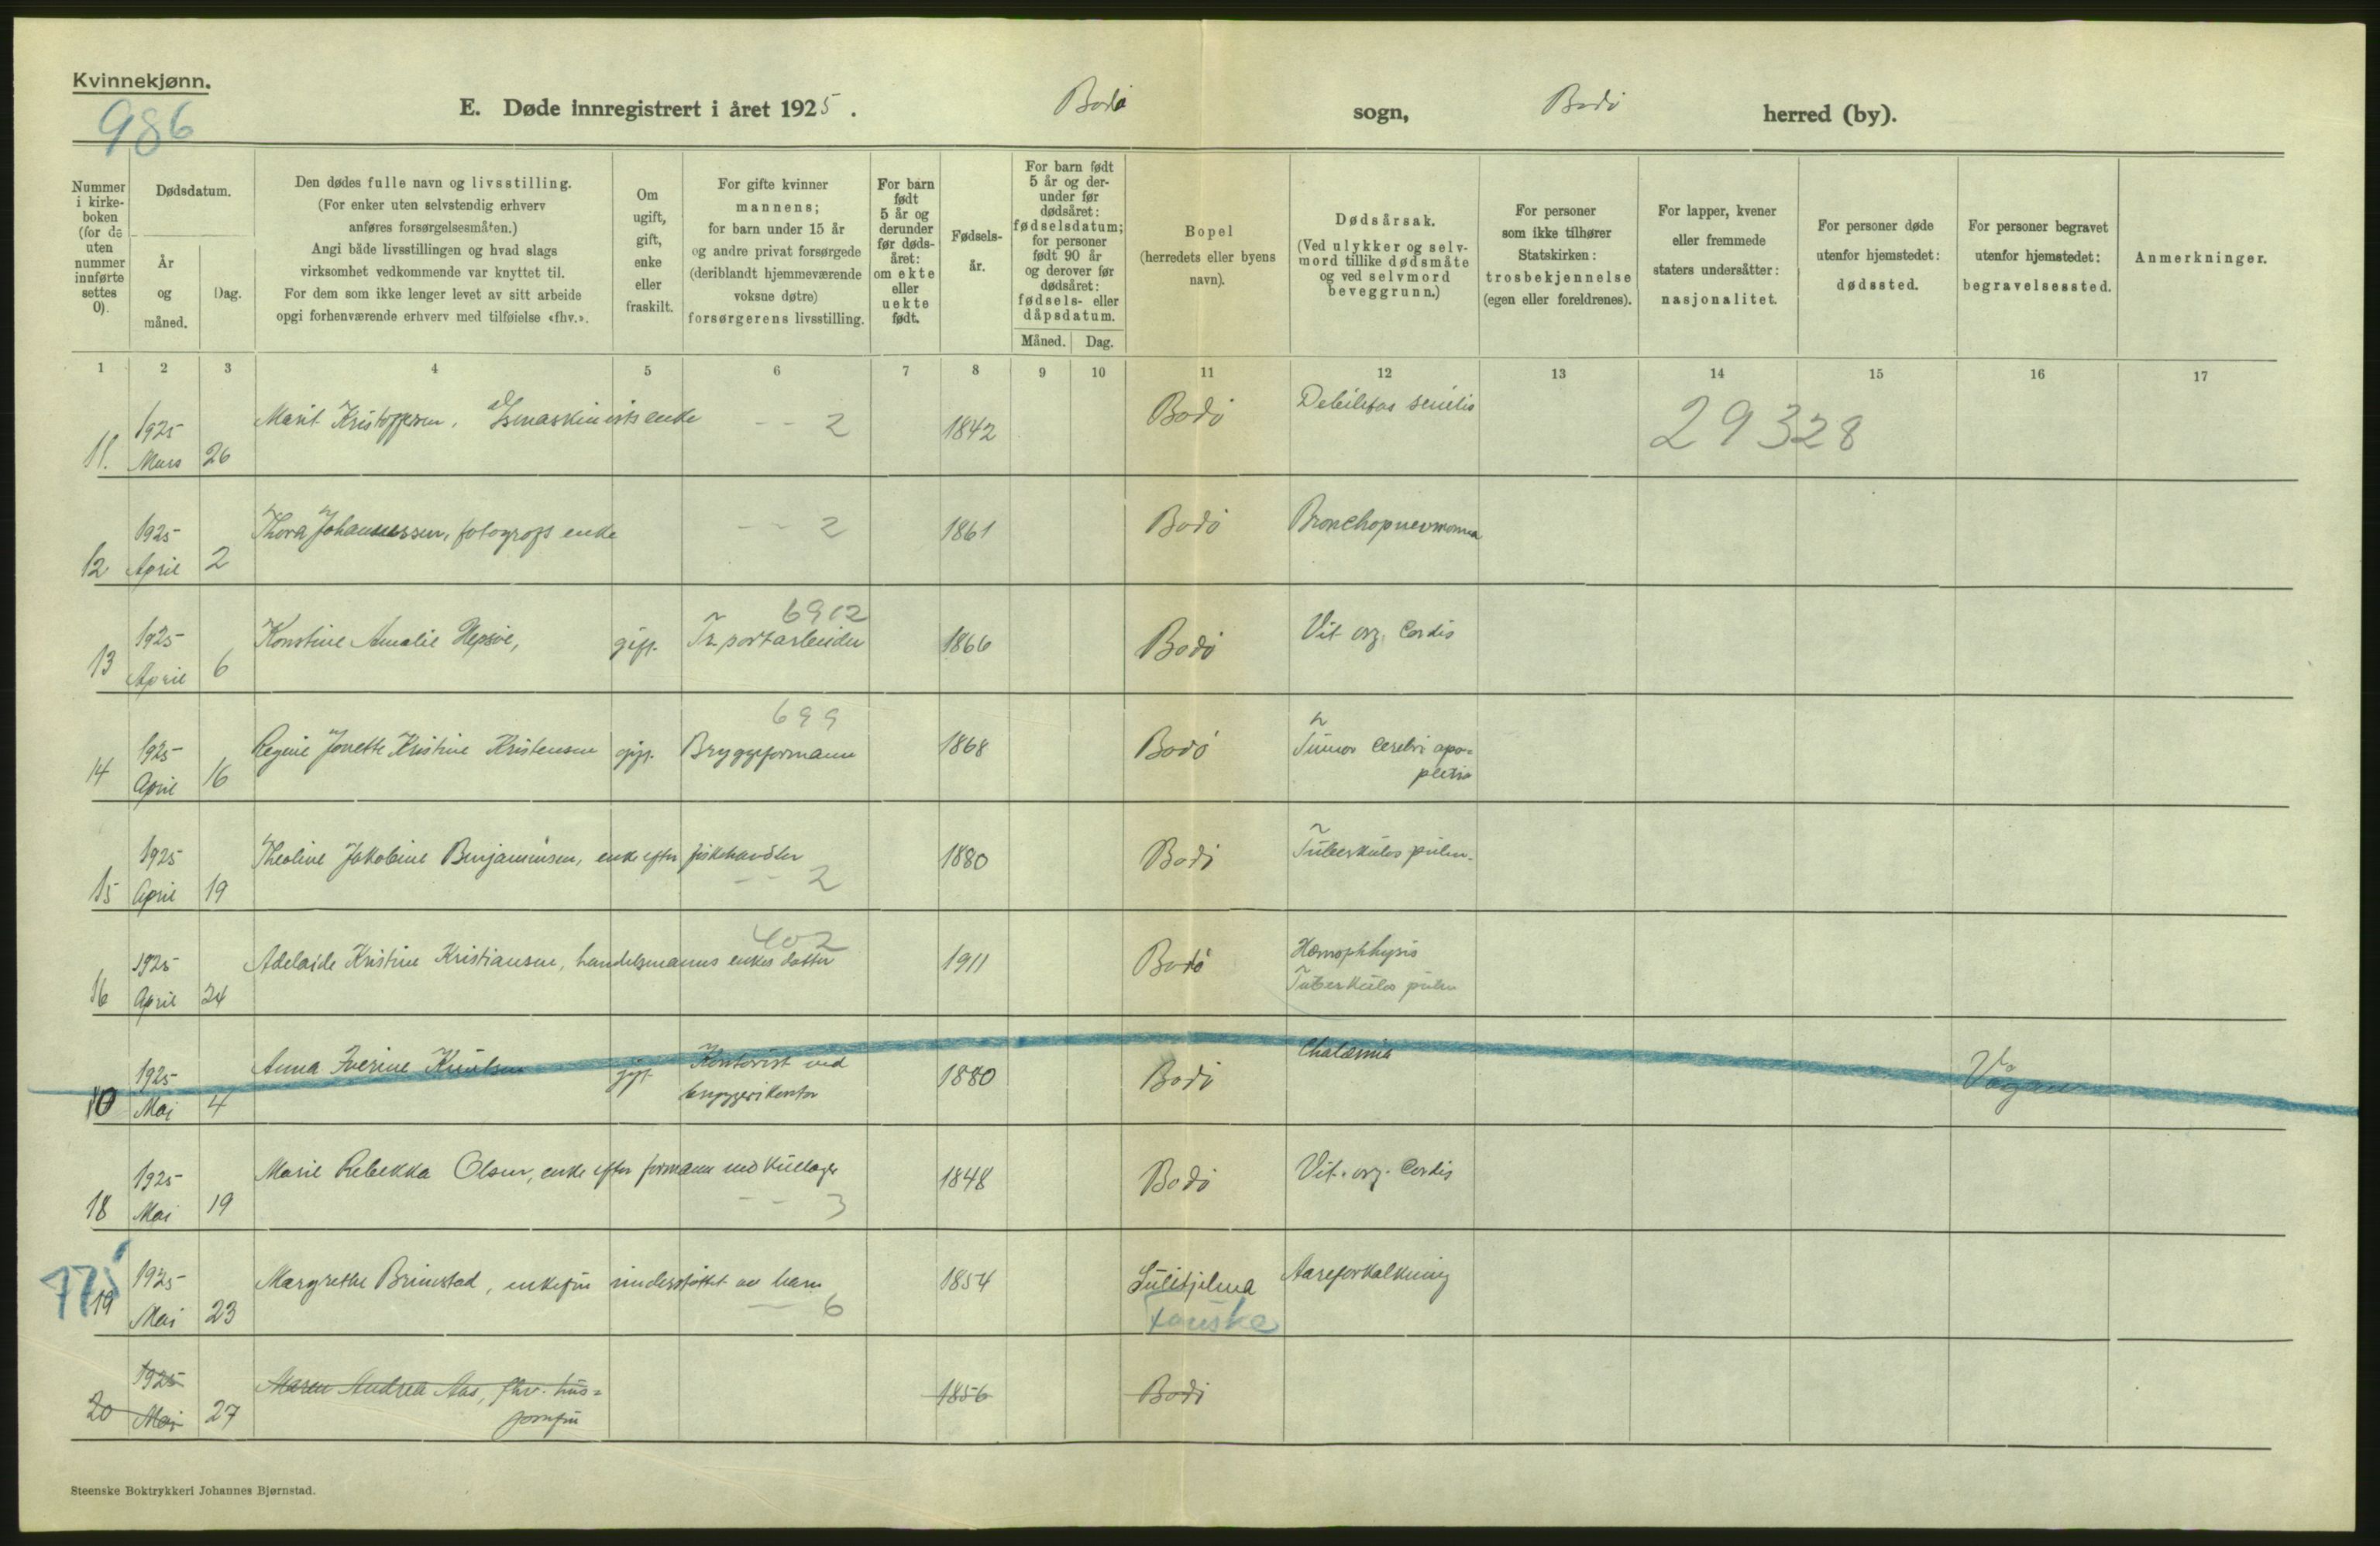 Kvinnekjønn.
986
E. Døde innregistrert i året 1925. Bodø sogn, Bodø herred (by).
Nummer i kirkeboken (for de uten nummer innførte settes 0).
Dødsdatum.
År og måned.
Dag.
Den dødes fulle navn og livsstilling.
(For enker uten selvstendig erhverv
anføres forsørgelsesmåten.)
Angi både livsstillingen og hvad slags
virksomhet vedkommende var knyttet til.
For dem som ikke lenger levet av sitt arbeide
opgi forhenværende erhverv med tilføielse «fhv.».
Om ugift, gift, enke eller fraskilt.
For gifte kvinner
mannens;
for barn under 15 år
og andre privat forsørgede
(deriblandt hjemmeværende
voksne døtre)
forsørgerens livsstilling.
For barn født 5 år og derunder før dødsåret: om ekte eller uekte født.
Fødselsår.
For barn født 5 år og derunder før dødsåret: fødselsdatum; for personer født 90 år og derover før dødsåret: fødsels- eller dåpsdatum.
Måned. Dag.
Bopel
(herredets eller byens
navn).
Dødsårsak.
(Ved ulykker og selvmord tillike dødsmåte
og ved selvmord
beveggrunn.)
For personer
som ikke tilhører
Statskirken:
trosbekjennelse
(egen eller foreldrenes).
For lapper, kvener
eller fremmede
staters undersåtter:
nasjonalitet.
For personer døde
utenfor hjemstedet:
dødssted.
For personer begravet
utenfor hjemstedet:
begravelsessted.
Anmerkninger.
1 2 3 4 5 6 7 8 9 10 11 12 13 14 15 16 17
11. 1925 Mars 26 Marit Kristoffersen, enke -- 2 1842 Bodø Debilitas senilis 29328
12 1925 April 2 Thora Johannessen, fotografs enke -- 2 1861 Bodø Bronchopnevmonia
13 1925 April 6 Konstine Amalie gift. 6912 Tr.sportarbeider 1866 Bodø Vit. org. Cordis
14 1925 April 16 Regine Jonette Kristine Kristensen gift. 699 Bryggeformann 1868 Bodø Tumor Cerebri apo=
plexia
15 1925 April 19 Theoline Jakobine Benjaminsen, enke efter fiskehandler -- 2 1880 Bodø Tuberkulos pulm.
16 1925 April 24 Adelaide Kristine Kristiansen, handelsmanns enkes datter 402 1911 Bodø Hæmophthysis
Tuberkulos pulm
10 1925 Mai 4 Anna Iverine Knutsen gift Kontorist ved
bryggerikontor 1880 Bodø Vågan
18 1925 Mai 19 Marie Rebekka Olsen, enke efter formann ved kullager -- 3 1848 Bodø Vit. org. Cordis
775
19 1925 Mai 23 Margrethe Brimstad, enkefru understøttet av barn -- 6 1854 Sulitjelma Aareforkalkning
Fauske
20 1925 Mai 27 Maren Andrea Aas, fhv. hus=
jomfru 1856 Bodø
Steenske Boktrykkeri Johannes Bjørnstad.